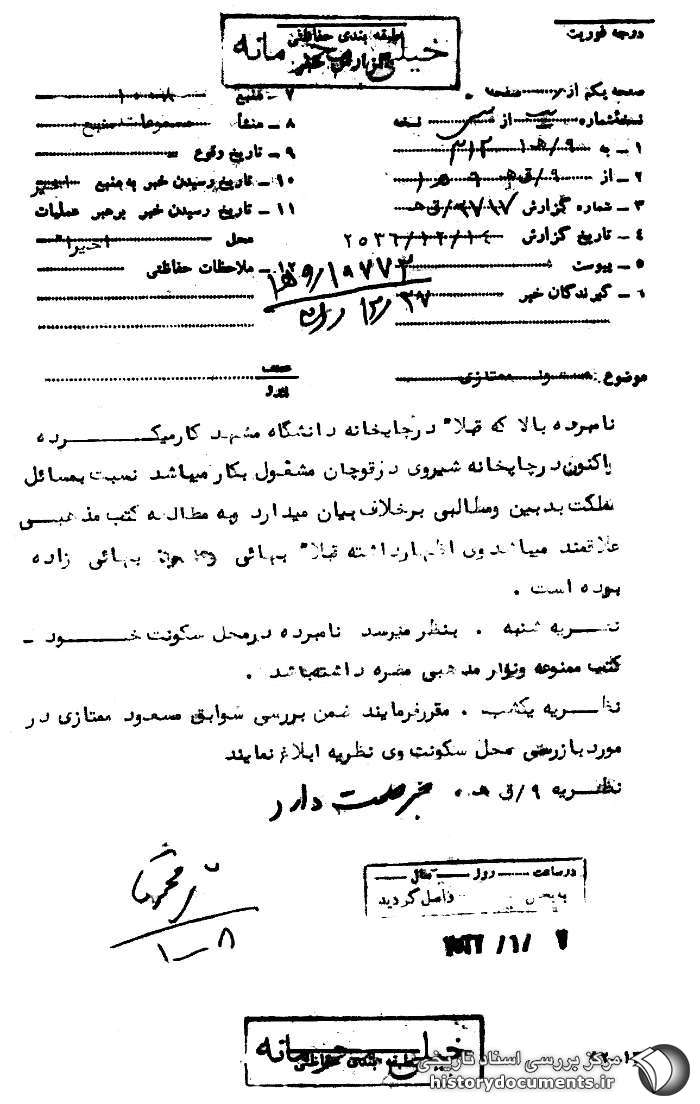 درجه فوریت
طبقه بندی حفاظتی
خیلی محرمانه
گزارش خبر
صفحه یکم از صفحه
نسخه شماره از نسخه
۱ ـ به ۳۱۲
۲ ـ از ۹/ق‌ﻫ
۳ ـ شماره گزارش
۴ ـ تاریخ گزارش ۲۵۳۶/۱۲/۱۴
۵ ـ پیوست
۶ ـ گیرندگان خبر
۷ ـ منبع ۱۰۰۸
۸ ـ منشاء مسموعات منبع
۹ ـ تاریخ وقوع
۱۰ ـ تاریخ رسیدن خبر به منبع اخیرا
۱۱ ـ تاریخ رسیدن خبر برهبر عملیات
محل اخیرا"
۱۲ ـ ملاحظات حفاظتی
موضوع : ممتازی
عطف
پیرو
نامبرده بالا که قبلا" درچاپخانه دانشگاه مشهد کارمیکرده
واکنون درچاپخانه شیروی درقوچان مشغول بکار میباشد نسبت بمسائل
مملکت بدبین ومطالبی برخلاف بیان میدارد وبه مطالعه کتب مذهبی
علاقمند میباشد وی اظهارداشته قبلا" بهائی بهائی زاده
بوده است .
نظریه شنبه . بنظر میرسد نامبرده درمحل سکونت خود ـ
کتب ممنوعه ونوار مذهبی مضره داشته‌باشد .
نظریه یکشنبه . مقررفرمایند ضمن بررسی سوابق مسعود ممتازی در
مورد بازرسی محل سکونت وی نظریه ابلاغ نمایند
نظریه ۹/ق ﻫ . خبر صحت دارد
درساعت روز سال
به بخش واصل گردید
۸-۱
خیلی محرمانه
طبقه بندی حفاظتی
مرکز بررسی اسناد تاریخی
historydocuments.ir